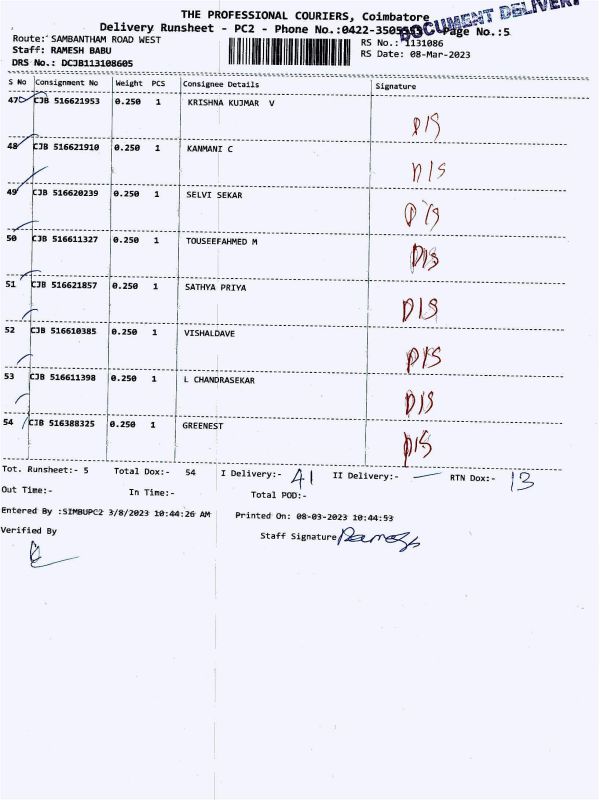 THE PROFESSIONAL COURIERS, Coimbatore
DOCUMENT DELIVERY
Delivery Runsheet - PC2 - Phone No.:0422-3505 Page No.:5
Route: SAMBANTHAM ROAD WEST
RS No.: 1131086
Staff: RAMESH BABU
RS Date: 08-Mar-2023
DRS No.: DCJB113108605
S No Consignment No Weight PCS Consignee Details Signature
47 CJB 516621953 0.250 1 KRISHNA KUJMAR V D/S
48 CJB 516621910 0.250 1 KANMANI C D/S
49 CJB 516620239 0.250 1 SELVI SEKAR D/S
50 CJB 516611327 0.250 1 TOUSEEFAHMED M D/S
51 CJB 516621857 0.250 1 SATHYA PRIYA D/S
52 CJB 516610385 0.250 1 VISHALDAVE D/S
53 CJB 516611398 0.250 1 L CHANDRASEKAR D/S
54 CJB 516388325 0.250 1 GREENEST D/S
Tot. Runsheet:- 5 Total Dox:- 54 I Delivery:- 41 II Delivery:- — RTN Dox:- 13
Out Time:- In Time:- Total POD:-
Entered By :SIMBUPC2 3/8/2023 10:44:26 AM Printed On: 08-03-2023 10:44:53
Verified By Staff Signature